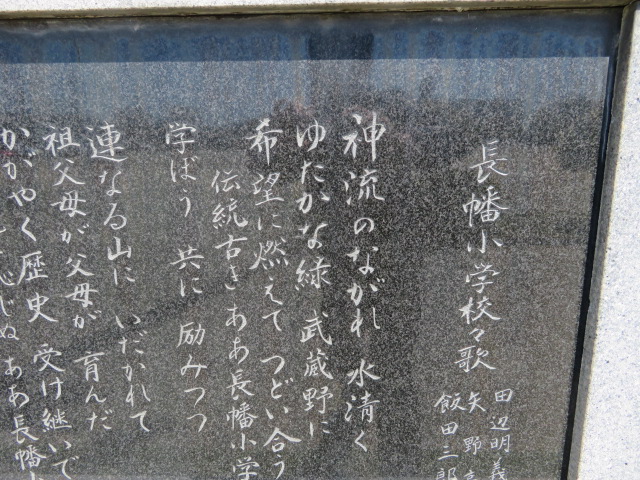 長幡小学校々歌
田辺明義
矢野
飯田三郎
神流のながれ 水清く
ゆたかな緑 武蔵野に
希望に燃えて つどい合う
伝統古き ああ長幡小学
学ばう 共に 励みつつ
連なる山に いだかれて
祖父母が父母が 育んだ
かがやく歴史 受け継いで
ああ長幡